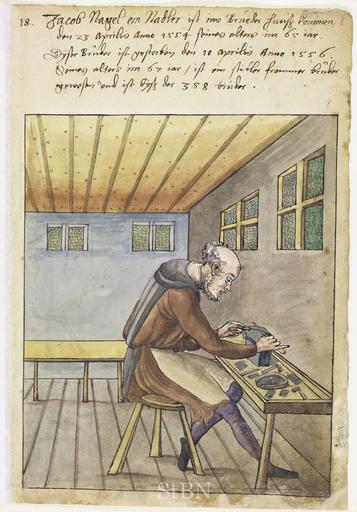 18. Jacob Nagel ein Nadler ist ins Brüeder Hauß kommen 8
den 23 Aprilis Anno 1554 seines alters im 65 iar
Diser Bruder ist gestorben den 10 Aprilis Anno 1556
Seines alters im 67 iar / ist ein stiller frommer bruder
gewesen und ist diß der 358 bruder.
StBN